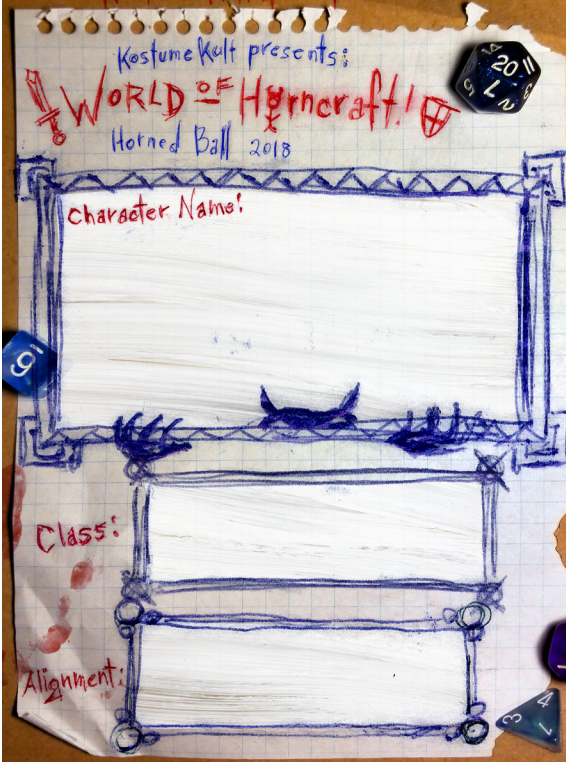 Kostume Kult presents:
WORLD OF Horncraft!
Horned Ball 2018
Character Name:
Class:
Alignment:
14
20
11
2
3
5
9
3
4
1